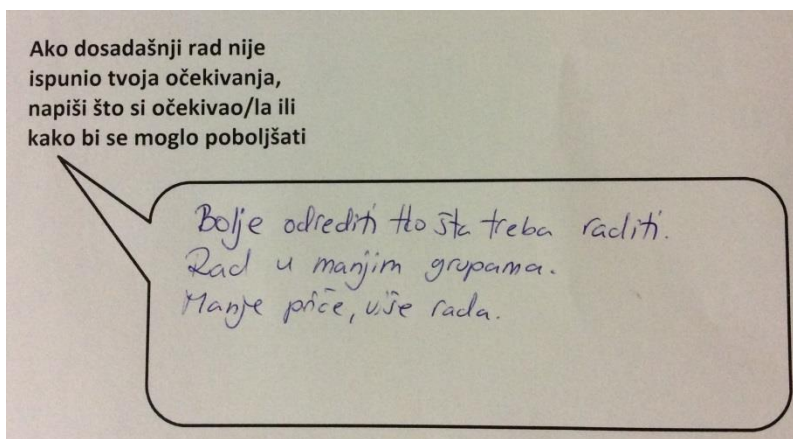 Ako dosadašnji rad nije
ispunio tvoja očekivanja,
napiši što si očekivao/la ili
kako bi se moglo poboljšati
Bolje odrediti tko šta treba raditi.
Rad u manjim grupama.
Manje priče, više rada.